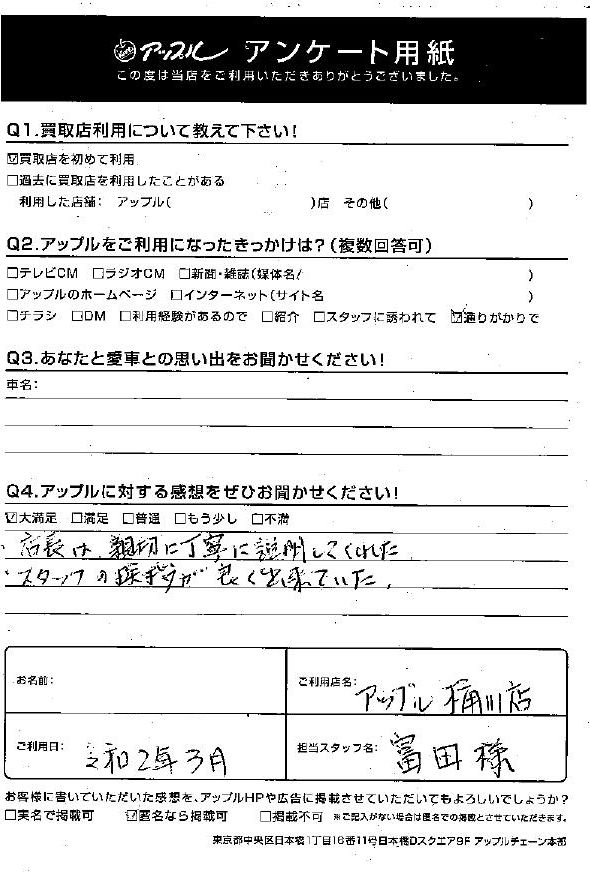 アップル アンケート用紙
この度は当店をご利用いただきありがとうございました。
Q1.買取店利用について教えて下さい!
☑買取店を初めて利用
□過去に買取店を利用したことがある
利用した店舗: アップル( )店 その他( )
Q2.アップルをご利用になったきっかけは?(複数回答可)
□テレビCM □ラジオCM □新聞・雑誌(媒体名/ )
□アップルのホームページ □インターネット(サイト名 )
□チラシ □DM □利用経験があるので □紹介 □スタッフに誘われて ☑通りがかりで
Q3.あなたと愛車との思い出をお聞かせください!
車名:
Q4.アップルに対する感想をぜひお聞かせください!
☑大満足 □満足 □普通 □もう少し □不満
・店長は親切に丁寧に説明してくれた
・スタッフの採拶が良く出来ていた。
お名前:
ご利用店名: アップル 桶川店
ご利用日: 令和2年3月
担当スタッフ名: 富田様
お客様に書いていただいた感想を、アップルHPや広告に掲載させていただいてもよろしいでしょうか?
□実名で掲載可 ☑匿名なら掲載可 □掲載不可 ※ご記入がない場合は匿名での掲載とさせていただきます。
東京都中央区日本橋1丁目16番11号日本橋Dスクエア9F アップルチェーン本部